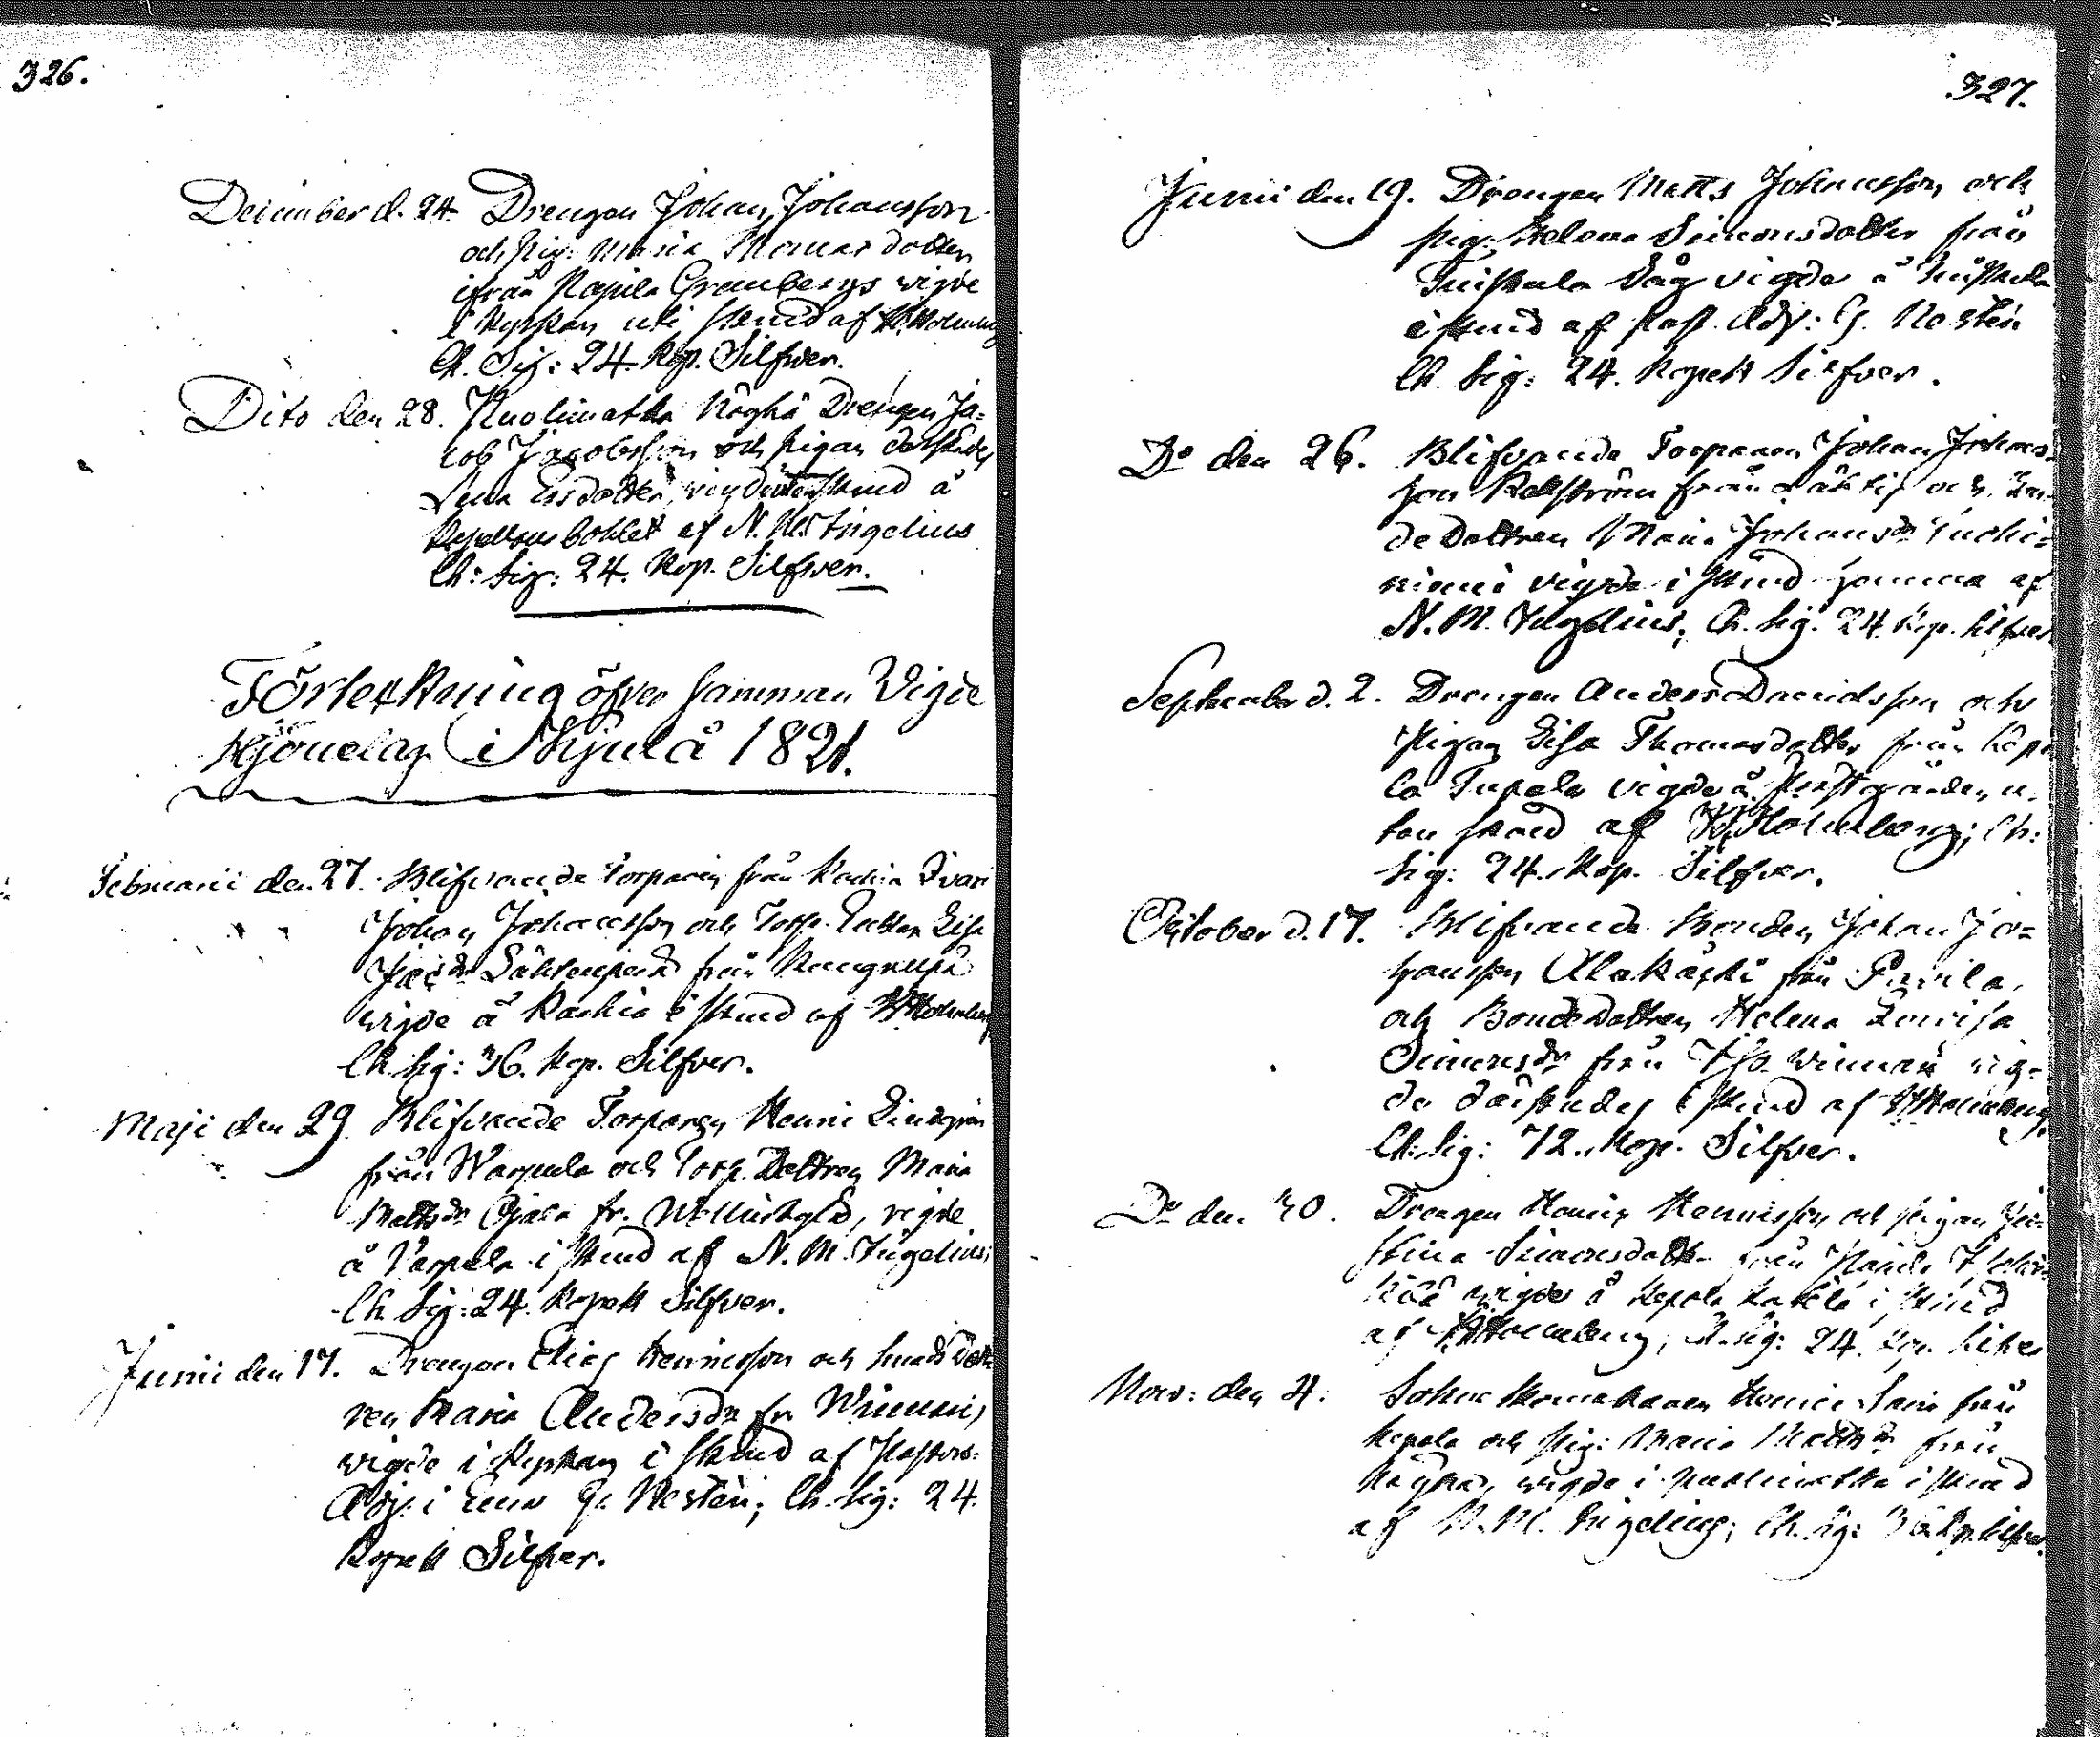 326.
December d. 24. Drengen Johan Johansson
och Pig: Maria Thomas dotter
ifrån Kapila Granbergs wigde
i Kyrkan uti stånd af Holmberg
Ch. Sig: 24. Kop. Silfwer.
Dito den 28. Kuolimatka Röyhä Drengen Ja=
cob Jacobsson och pigan
Lena vigde utan stånd å
Capellans bohlet af N. M. Tingelius
Ch: Sig: 24. Kop. Silfwer.
Förteckning öfver Samman Vigde
Hjonelag i Kjulå 1821.
Februarii den 27. Blifvande Torparen från Kaukia
Johan Johansson och Torp. Dottern Lisa
från
wigde å Kaukia i stånd af Holmberg
Ch. Sig: 36. Kop. Silfver.
Maji den 29. Blifvande Torparen Henric Lindgren
från Warpula och Torp. Dottren Maria
Matts dr Ojala fr. vigde
å Varpula i stånd af N. M. Tingelius;
Ch. Sig: 24. Kopek Silfver.
Junii den 17. Drengen Elias Henricsson och
ren Maria Anders dr fr
wigde i Kyrkan i stånd af Pastors.
Adj. i Eura G. Nestén; Ch. Sig: 24.
Kopek Silfver.
327.
Junii den 19. Drengen Matts Johansson och
pig: Helena Simonsdotter från
Tuiskula vigde å Tuiskula
i stånd af Past. Adj: G. Nestén
Ch. Sig: 24. Kopek Silfver.
Do den 26. Blifvande Torparen Johan Johans=
son från och
de Dottren Maria Johans dr
niemi vigde i stånd af
N. M. Tingelius; Ch. Sig. 24. Kop. Silfver
September d. 2. Drengen Anders Davidsson och
Pigan Lisa Thomasdotter från Kepo
la Tupala vigde å Prästgården u.
tan stånd af Holmberg; Ch:
Sig: 24. Kop. Silfver.
October d. 17. Blifvande Bonden Johan Jo=
hansson Alakäski från
och BondeDottren Helena Lovisa
Simons dr från vig=
de därstädes i stånd af Holmberg
Ch. Sig: 72. Kop. Silfver.
Do den 30. Drengen Henric Henricsson och pigan
stina Simonsdotter från
wigde å Kepola i stånd
af Holmberg; Ch. Sig: 24. Kop. Silfver
Nov: den 4. Henric från
Kepola och Pig: Maria Matts dr från
wigde i Kuolimatka i stånd
af N. M. Tingelius; Ch. Sig: 36 Kop. Silfver